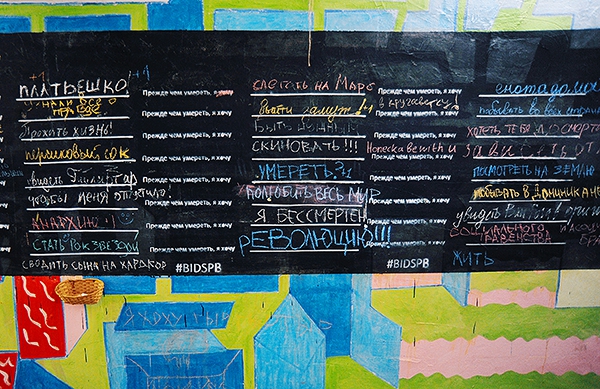 +1
ПЛАТЬЕШКО +1
Прежде чем умереть, я хочу
УЗНАЛИ ВСЕ
Прежде чем умереть, я хочу
ПРОЖИТЬ ЖИЗНЬ!
Прежде чем умереть, я хочу
ПЕРСИКОВЫЙ СОК
Прежде чем умереть, я хочу
увидеть
Прежде чем умереть, я хочу
чтобы меня отпустило!
Прежде чем умереть, я хочу
АНАРХИЮ
Прежде чем умереть, я хочу
СТАТЬ РОК ЗВЕЗДОЙ
Прежде чем умереть, я хочу
СВОДИТЬ СЫНА НА ХАРДКОР
#BIDSPB
СЛЕТАТЬ НА МАРС
Прежде чем умереть, я хочу
Выйти замуж! +1
в кругосветку!
Прежде чем умереть, я хочу
БЫТЬ
Прежде чем умереть, я хочу
СКИНОВАТЬ!!!
УМЕРЕТЬ
Прежде чем умереть, я хочу
ПОЛЮБИТЬ ВЕСЬ МИР
Прежде чем умереть, я хочу
Я БЕССМЕРТЕН
Прежде чем умереть, я хочу
РЕВОЛЮЦИЮ!!!
Прежде чем умереть, я хочу
#BIDSPB
енота дома
побывать во всех странах
ХОТЕТЬ ТЕБЯ ДО СМЕРТИ
ПОСМОТРЕТЬ НА ЗЕМЛЮ
побывать в Доминикане
увидеть
СОЦИАЛЬНОГО
РАВЕНСТВА
ЖИТЬ
Я ХОЧУ